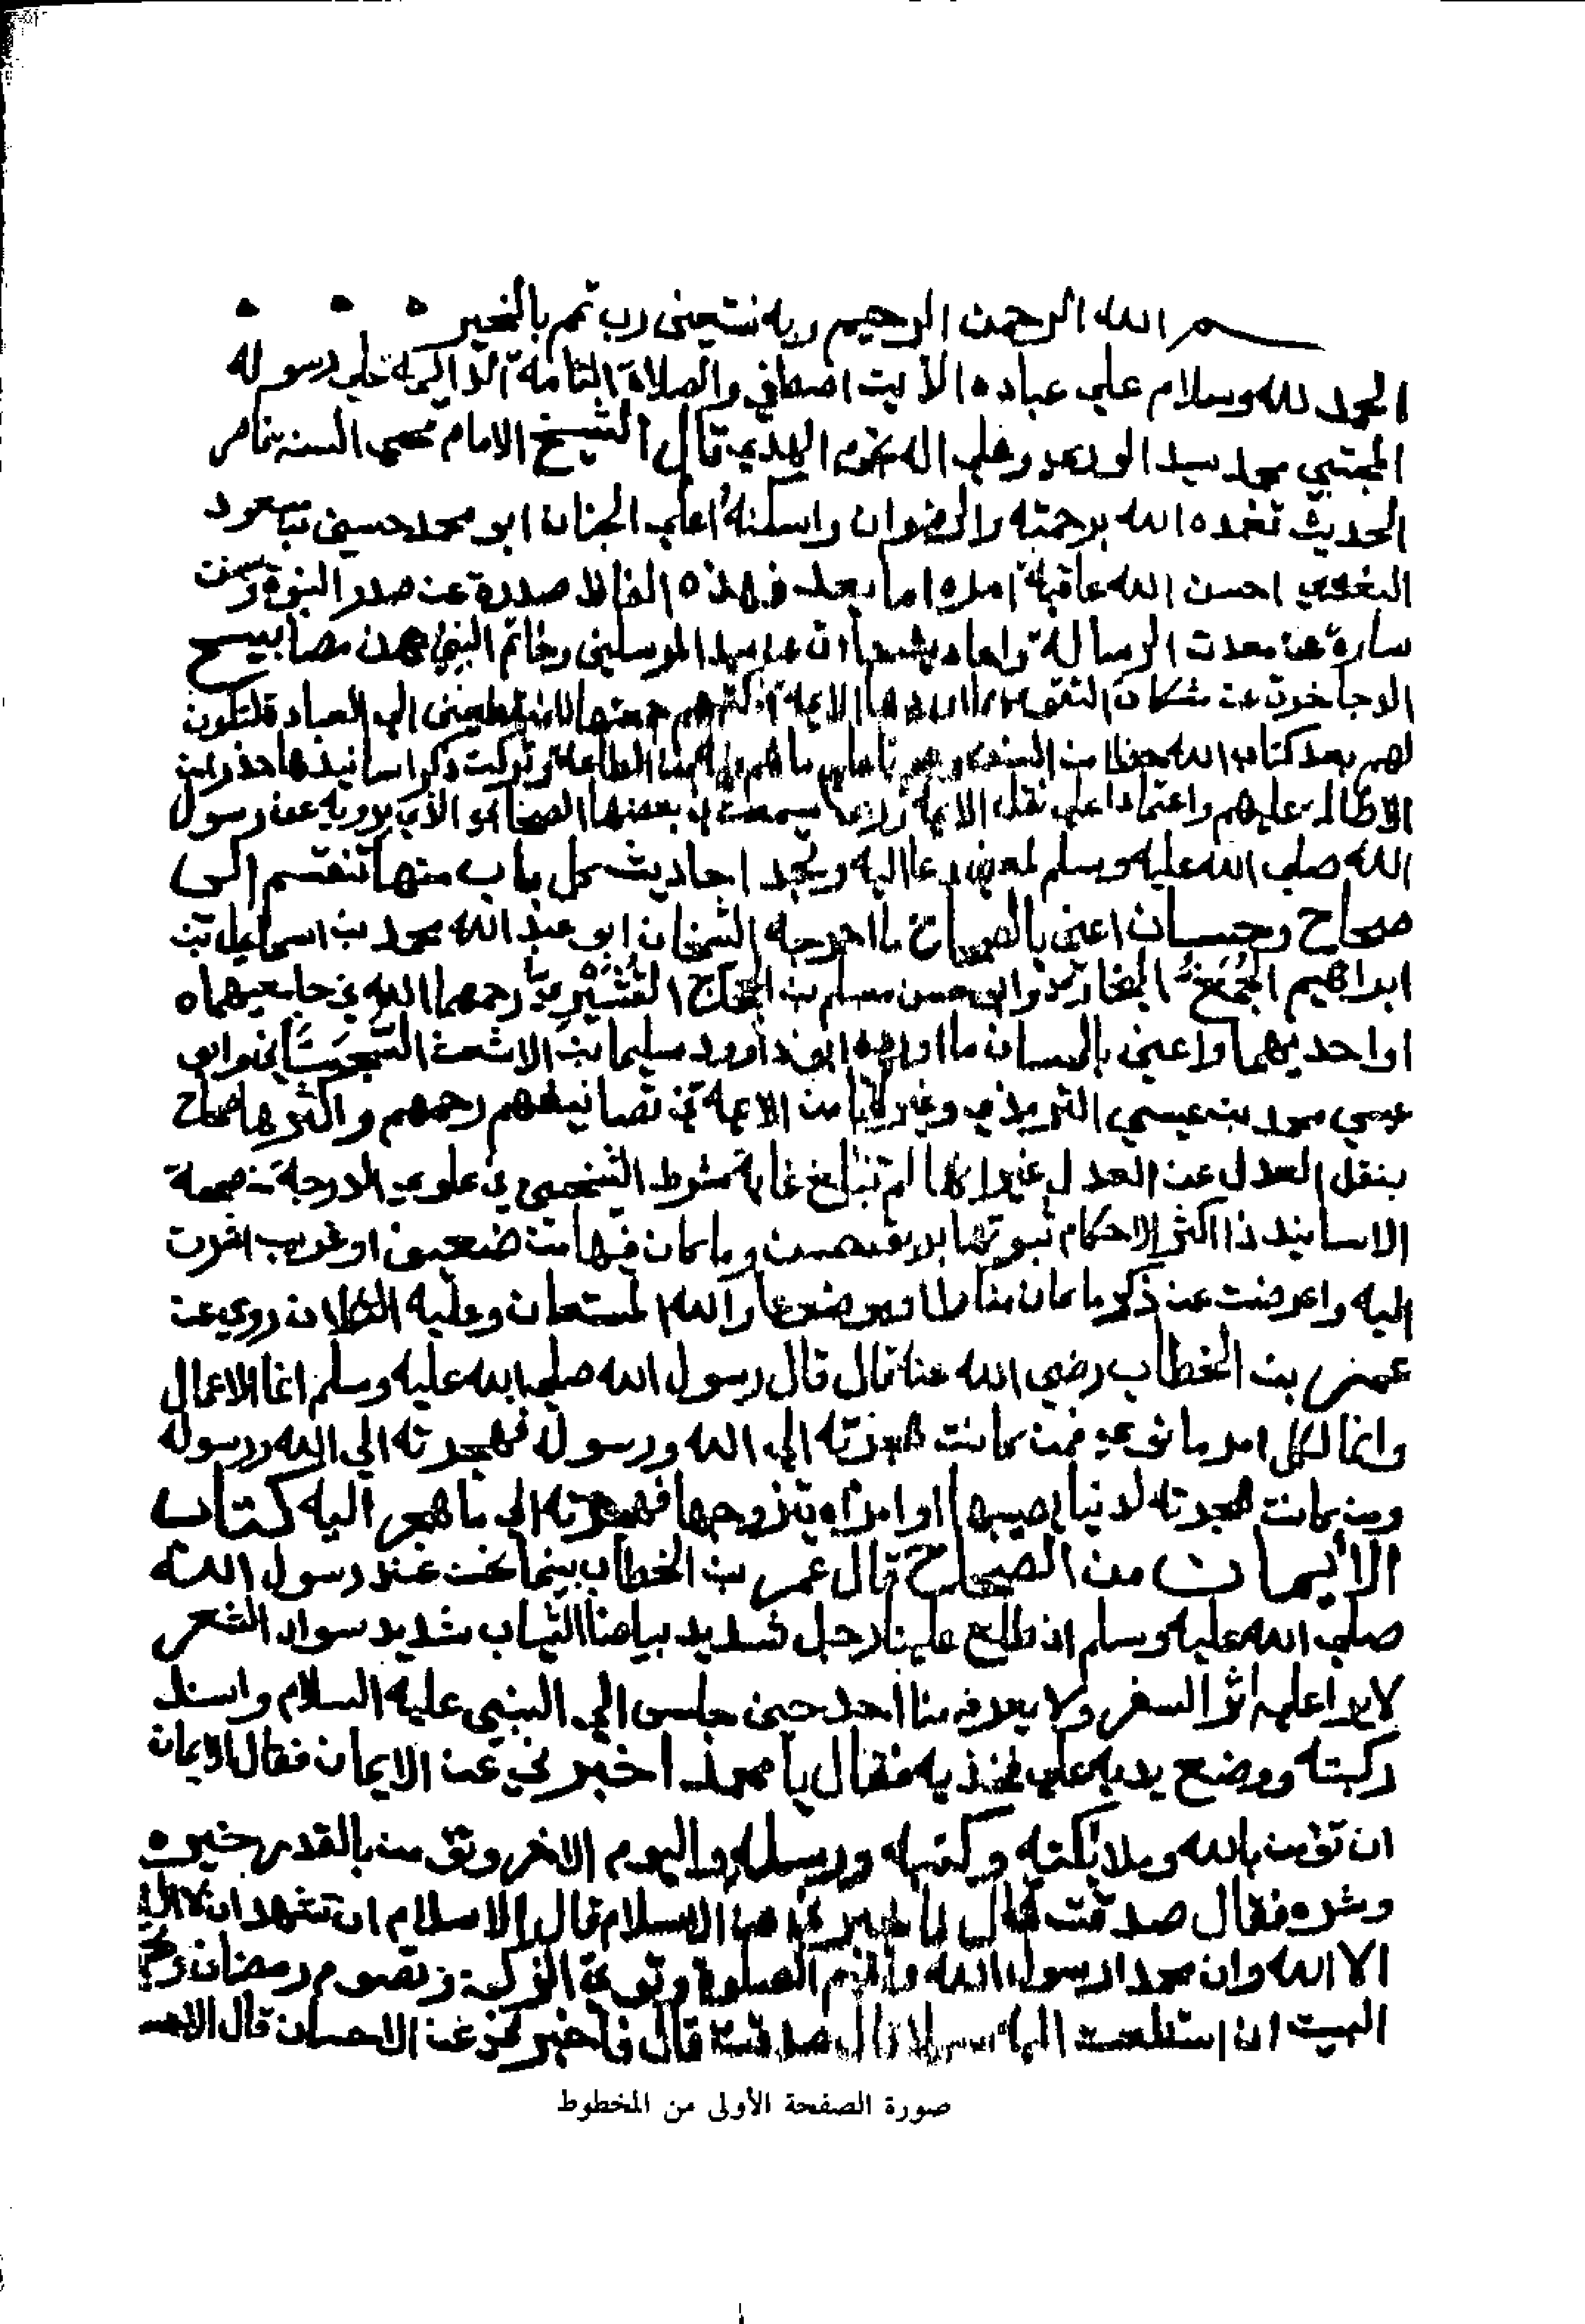 بسم الله الرحمن الرحيم وبه نستعين رب تمم بالخير
الحمد لله وسلام علي عباده الذين اصطفي والصلاة التامة الدايمة علي رسوله
المجتبي محمد سيد الوري وعلي اله نجوم الهدي قال الشيخ الامام محيي السنه ناصر
الحديث تغمده الله برحمته والرضوان واسكنه اعلي الجنان ابو محمد حسين بن مسعود
البغوي احسن الله عاقبة امره اما بعد فهذه الفاظ صدرة عن صدر النبوة وسنن
سارة عن معدن الرسالة واحاديث جاءت عن سيد المرسلين وخاتم النبيين هن مصابيح
الدجا خرجن عن مشكاة التقوي مما اوردها الايمة في كتبهم جمعتها للمنقطعين الي العباد لتكون
لهم بعد كتاب الله حظا من السنن وعونا علي ما هم فيه من الطاعة وتركت ذكر اسانيدها حذرا من
الاطالة عليهم واعتمادا علي نقل الايمة وربما سميت في بعضها الصحابي الذي يرويه عن رسول
الله صلي الله عليه وسلم لمعني دعا اليه وتجد احاديث كل باب منها تنقسم الى
صحاح وحسان اعني بالصحاح ما اخرجه الشيخان ابو عبد الله محمد بن اسماعيل بن
ابراهيم الجعفي البخاري وابو حسن مسلم بن الحجاج القشيري رحمهما الله في جامعيهما
او احديهما واعني بالحسان ما اورده ابو داوود سليمان بن الاشعث السجستاني وابو
عيسي محمد بن عيسي الترمذي وغيرهما من الايمة في تصانيفهم رحمهم واكثرها صحاح
بنقل العدل عن العدل غير انها لم تبلغ غاية شرط الشيخين في علو الدرجة من صحة
الاسانيد اذ اكثر الاحكام ثبوتها بطريق حسن وما كان فيها من ضعيف او غريب اشرت
اليه واعرضت عن ذكر ما كان منكرا او موضوعا والله المستعان وعليه التكلان روي عن
عمر بن الخطاب رضي الله عنه قال قال رسول الله صلي الله عليه وسلم انما الاعمال
وانما لكل امر ما نوي فمن كانت هجرته الي الله ورسوله فهجرته الي الله ورسوله
ومن كانت هجرته لدنيا يصيبها او امراه يتزوجها فهجرته الي ما هجر اليه كتاب
الايمان من الصحاح قال عمر بن الخطاب بينما نحن عند رسول الله
صلي الله عليه وسلم اذ طلع علينا رجل شديد بياض الثياب شديد سواد الشعر
لا يرا عليه اثر السفر ولا يعرفه منا احد حتي جلس الي النبي عليه السلام واسند
ركبته ووضع يديه علي فخذيه فقال يا محمد اخبرني عن الايمان فقال الايمان
ان تؤمن بالله وملايكته وكتبه ورسله واليوم الاخر وتؤمن بالقدر خيره
وشره فقال صدقت قال فاخبرني عن الاسلام قال الاسلام ان تشهد ان لا اله
الا الله وان محمدا رسول الله وتقيم الصلوة وتوتي الزكوة وتصوم رمضان وتحج
البيت ان استطعت اليه سبيلا قال صدقت قال فاخبرني عن الاحسان قال الاحسـ
صورة الصفحة الأولى من المخطوط